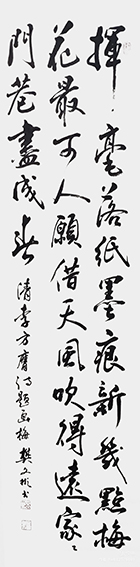 揮毫落紙墨痕新幾點梅
花最可人願借天風吹得遠家〻
門巷盡成春
清李方膺詩題画梅 樊文彬书